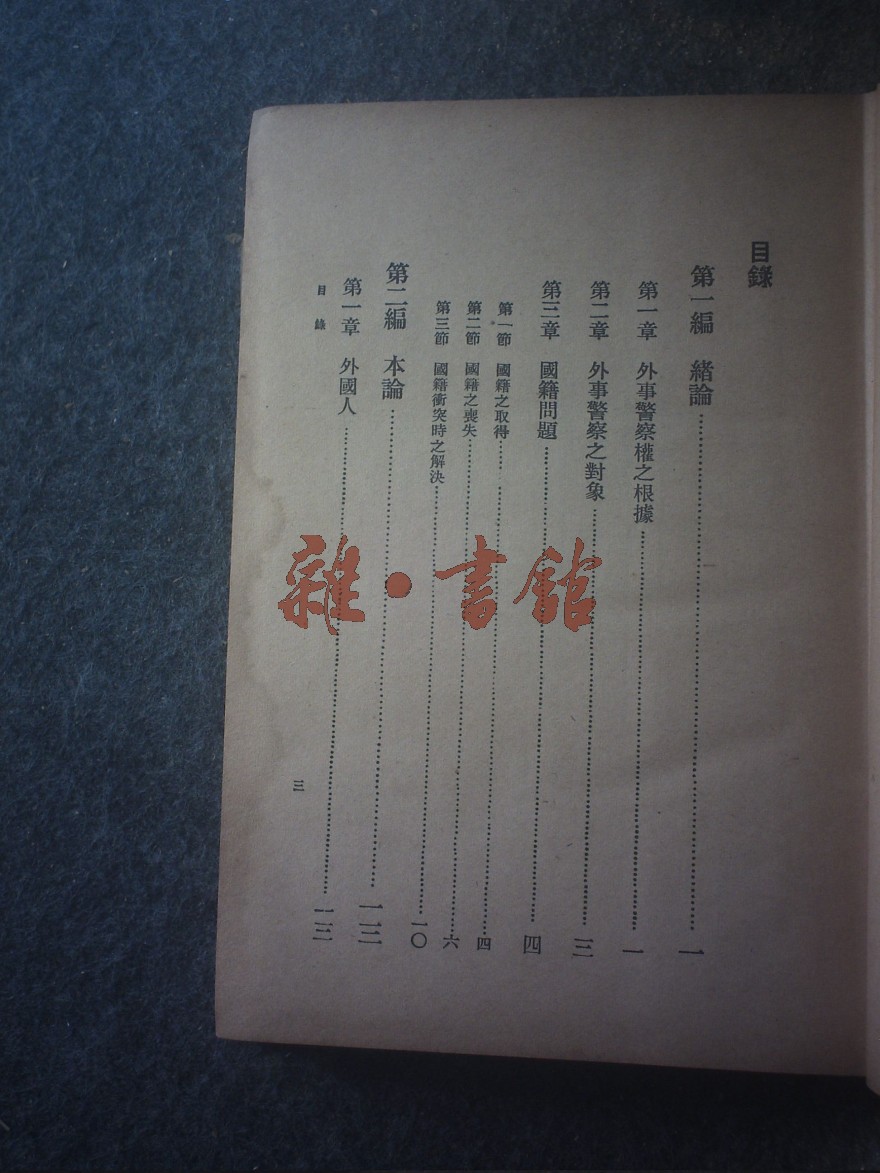 目錄
第一編　緒論……一
第一章　外事警察權之根據……一
第二章　外事警察之對象……三
第三章　國籍問題……四
第一節　國籍之取得……四
第二節　國籍之喪失……六
第三節　國籍衝突時之解決……一〇
第二編　本論……一三
第一章　外國人……一三
目錄
三
雜·書館